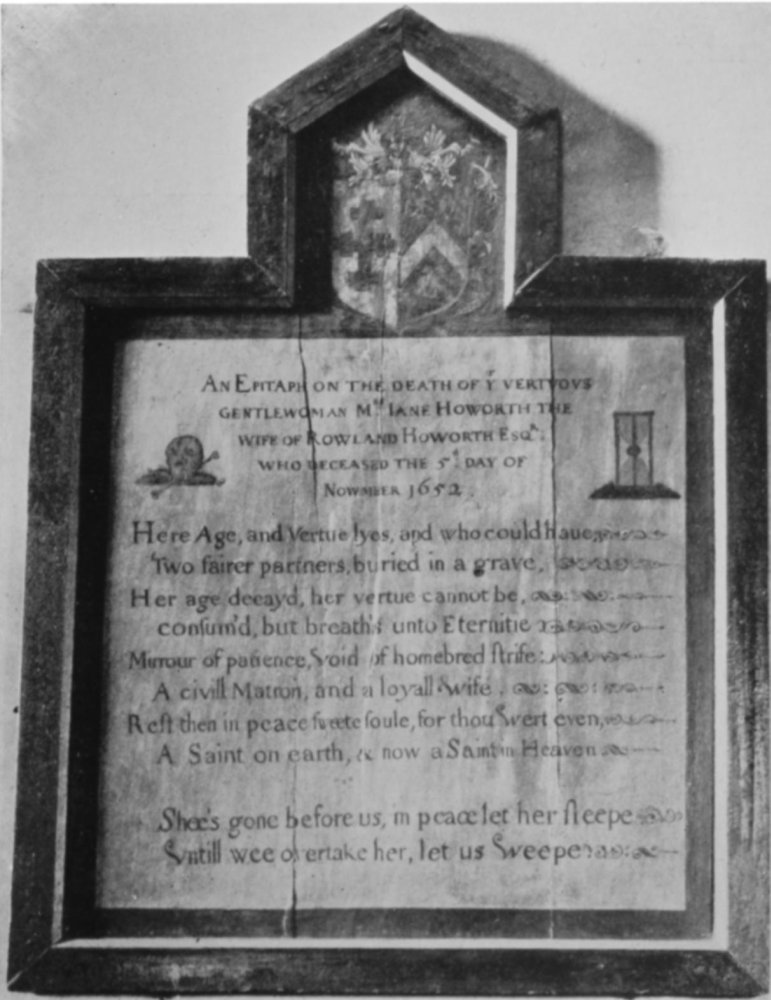 AN EPITAPH ON THE DEATH OF Yᵉ VERTVOVS
GENTLEWOMAN Mʳˢ IANE HOWORTH THE
WIFE OF ROWLAND HOWORTH ESQʳ:
WHO DECEASED THE 5ᵗ DAY OF
NOWMBER 1652.
Here Age, and Vertue lyes, and who could haue
Two fairer partners, buried in a grave,
Her age decayd, her vertue cannot be,
consum'd, but breath's unto Eternitie
Mirrour of patience, Void of homebred strife:
A civill Matron, and a loyall Wife.
Rest then in peace sweete soule, for thou Wert even,
A Saint on earth, & now a Saint in Heaven
Shee's gone before us, in peace let her sleepe
Vntill wee overtake her, let us Weepe